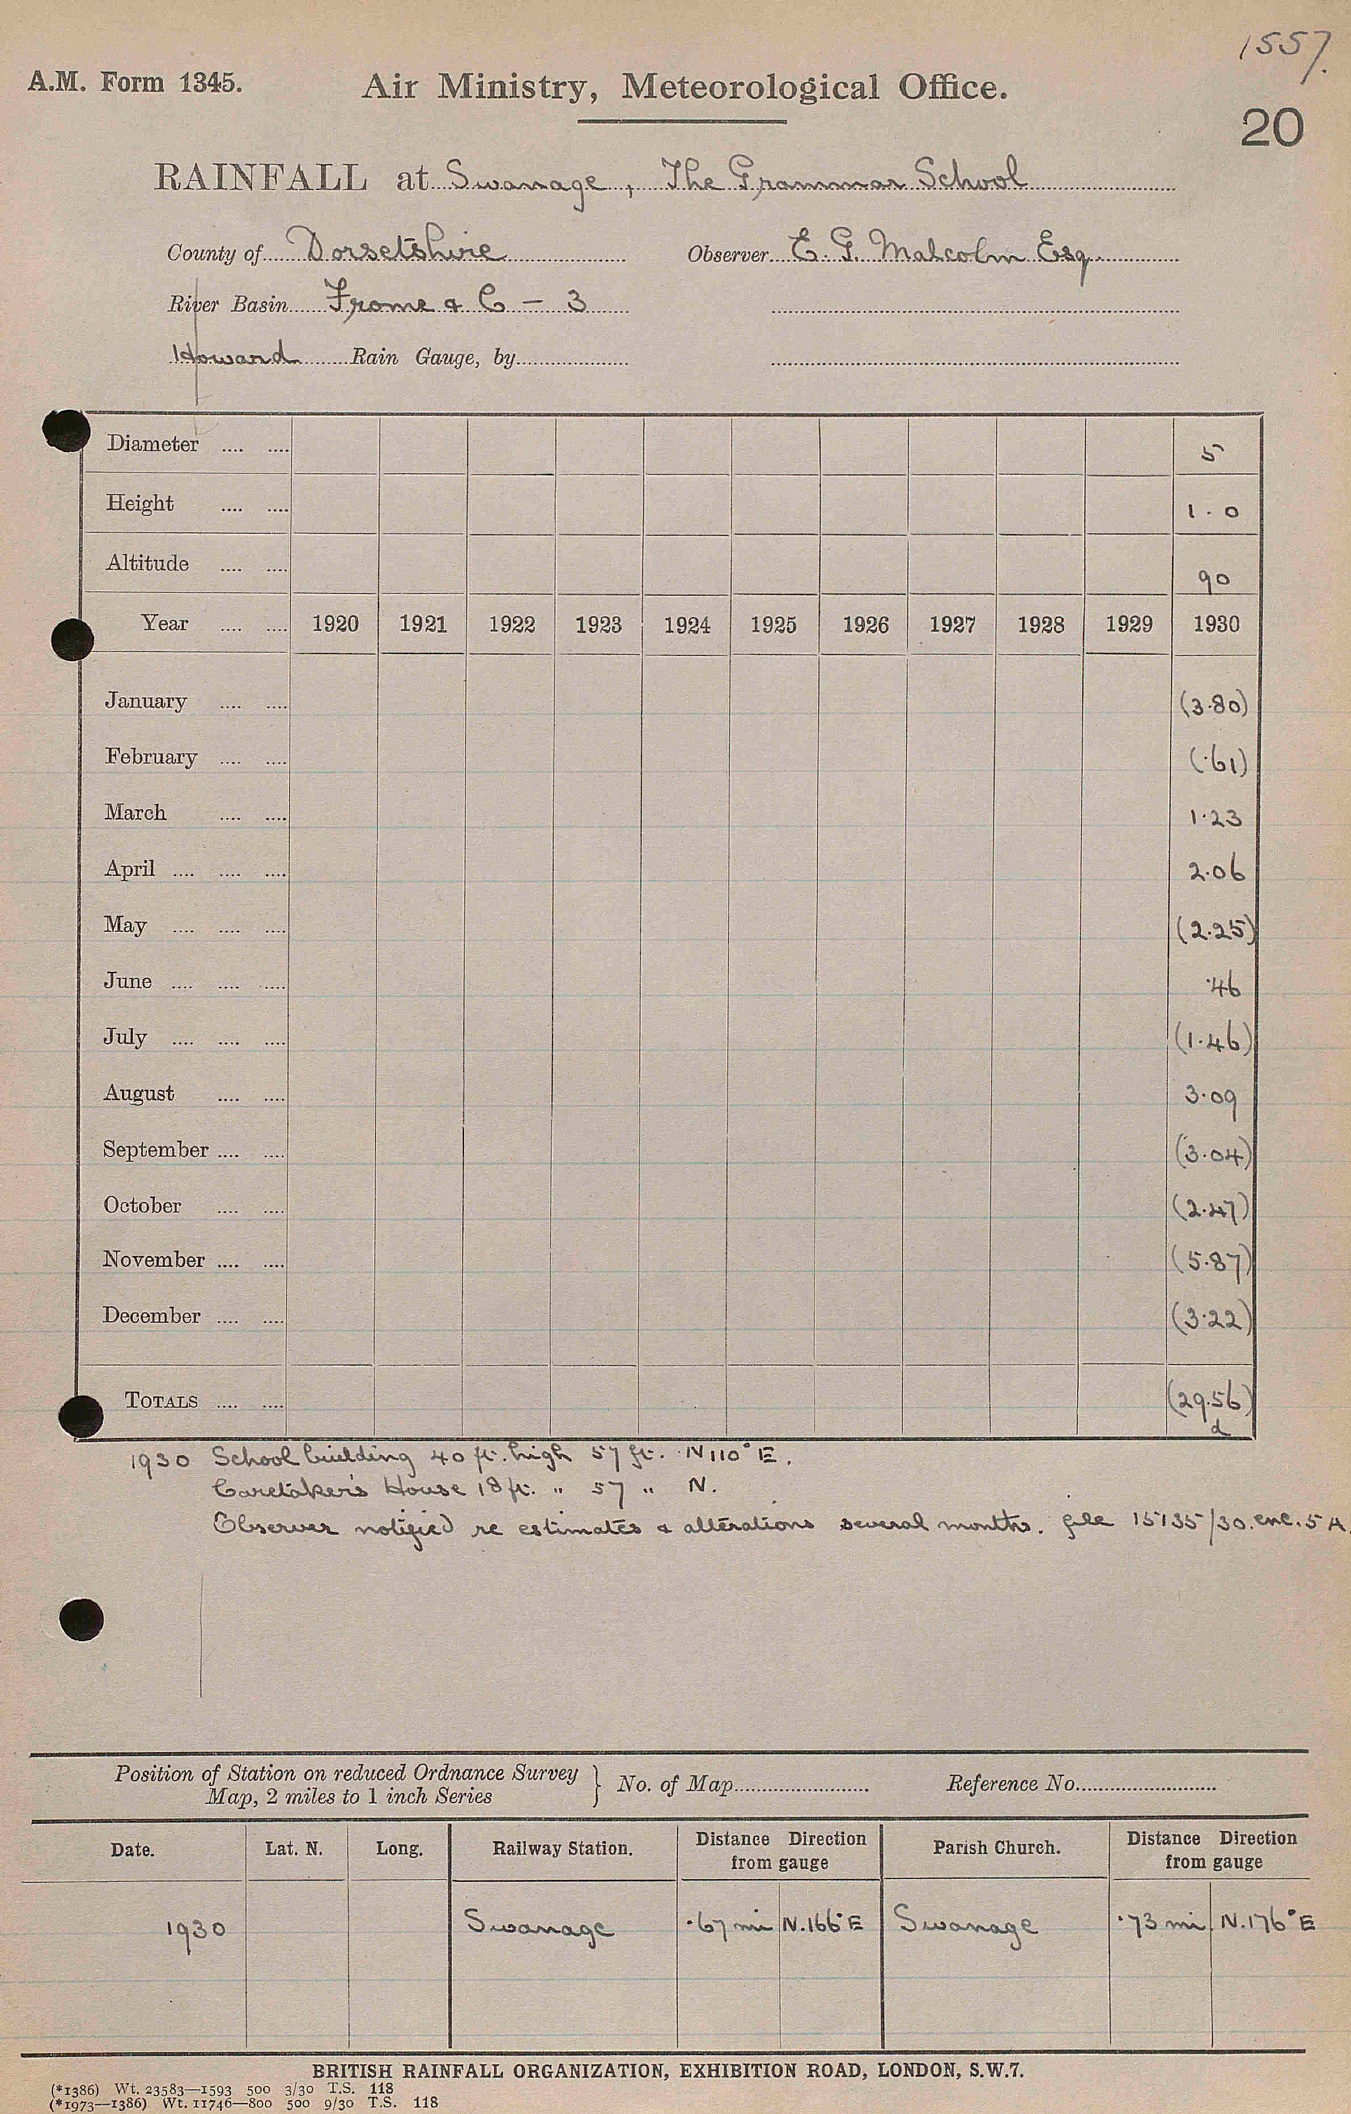 1557.
A.M. Form 1345. Air Ministry, Meteorological Office.
20
RAINFALL at Swanage, The Grammar School
County of Dorsetshire Observer E. G. Malcolm Esq.
River Basin Frome &C – 3
Howard Rain Gauge, by
Diameter .... .... 5
Height .... .... 1.0
Altitude .... .... 90
Year .... .... 1920 1921 1922 1923 1924 1925 1926 1927 1928 1929 1930
January .... .... (3.80)
February .... .... (.61)
March .... .... 1.23
April .... .... .... 2.06
May .... .... .... (2.25)
June .... .... .... .46
July .... .... .... (1.46)
August .... .... 3.09
September .... .... (3.04)
October .... .... (2.47)
November .... .... (5.87)
December .... .... (3.22)
TOTALS .... .... (29.56)
d
1930 School building 40 ft. high 57 ft. N 110° E.
Caretaker's House 18 ft. " 57 " N.
Observer notified re estimates & alterations several months. file 15135/30. enc. 5A.
Position of Station on reduced Ordnance Survey
Map, 2 miles to 1 inch Series } No. of Map Reference No.
Date. Lat. N. Long. Railway Station. Distance Direction from gauge Parish Church. Distance Direction from gauge
1930 Swanage .67 mi N.166° E Swanage .73 mi N.176° E
BRITISH RAINFALL ORGANIZATION, EXHIBITION ROAD, LONDON, S.W.7.
(*1386) Wt. 23583—1593 500 3/30 T.S. 118
(*1973—1386) Wt. 11746—800 500 9/30 T.S. 118